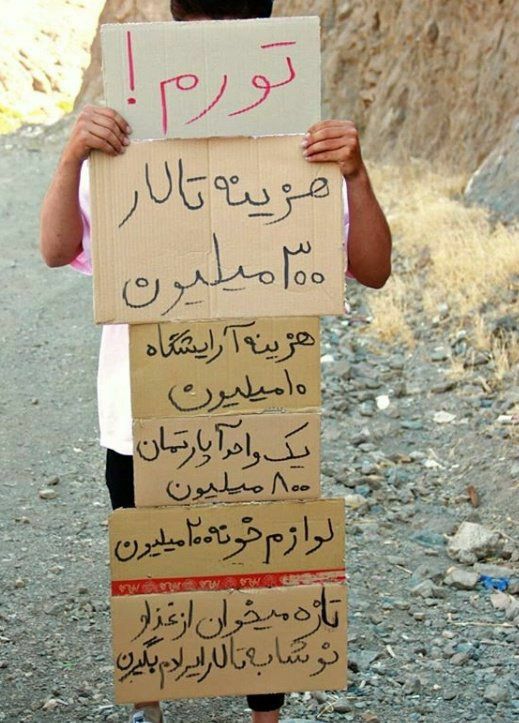 تورم!
هزینه تالار
۳۰۰ میلیون
هزینه آرایشگاه
۱۰ میلیون
یک واحد آپارتمان
۸۰۰ میلیون
لوازم خونه ۲۰۰ میلیون
تازه میخوان از غذا و
نوشابه تالار ایرادم بگیرن